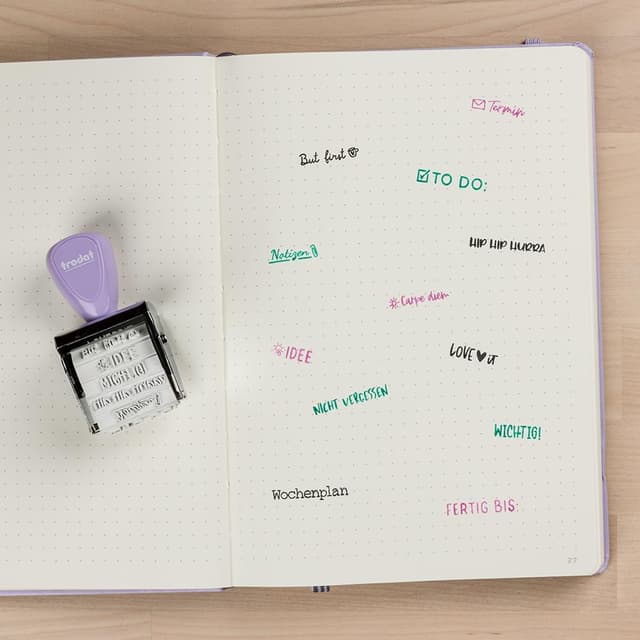 Termin
But first
TO DO:
HIP HIP HURRA
Notizen
Carpe diem
IDEE
LOVE it
NICHT VERGESSEN
WICHTIG!
Wochenplan
FERTIG BIS:
27
trodat